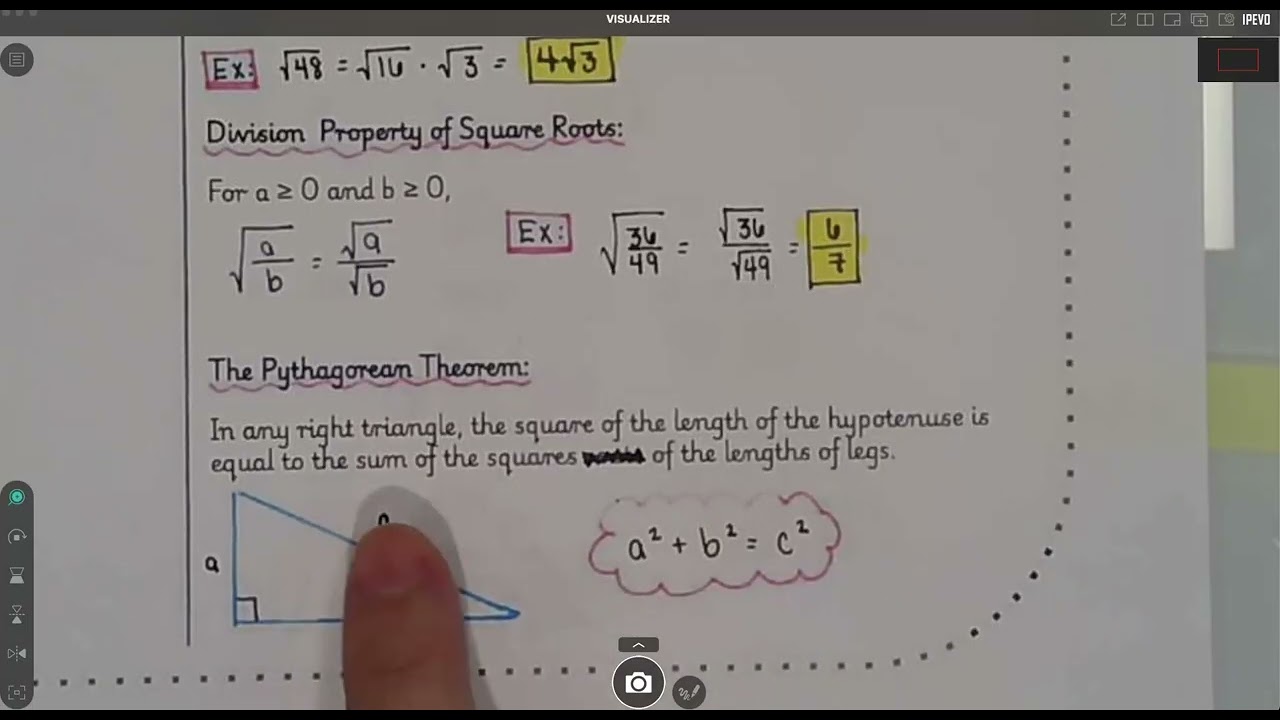 VISUALIZER
IPEVO
Ex: √48 = √16 · √3 = 4√3
Division Property of Square Roots:
For a ≥ 0 and b ≥ 0,
√(a/b) = √a/√b
Ex: √(36/49) = √36/√49 = 6/7
The Pythagorean Theorem:
In any right triangle, the square of the length of the hypotenuse is
equal to the sum of the squares of the lengths of legs.
a
a² + b² = c²